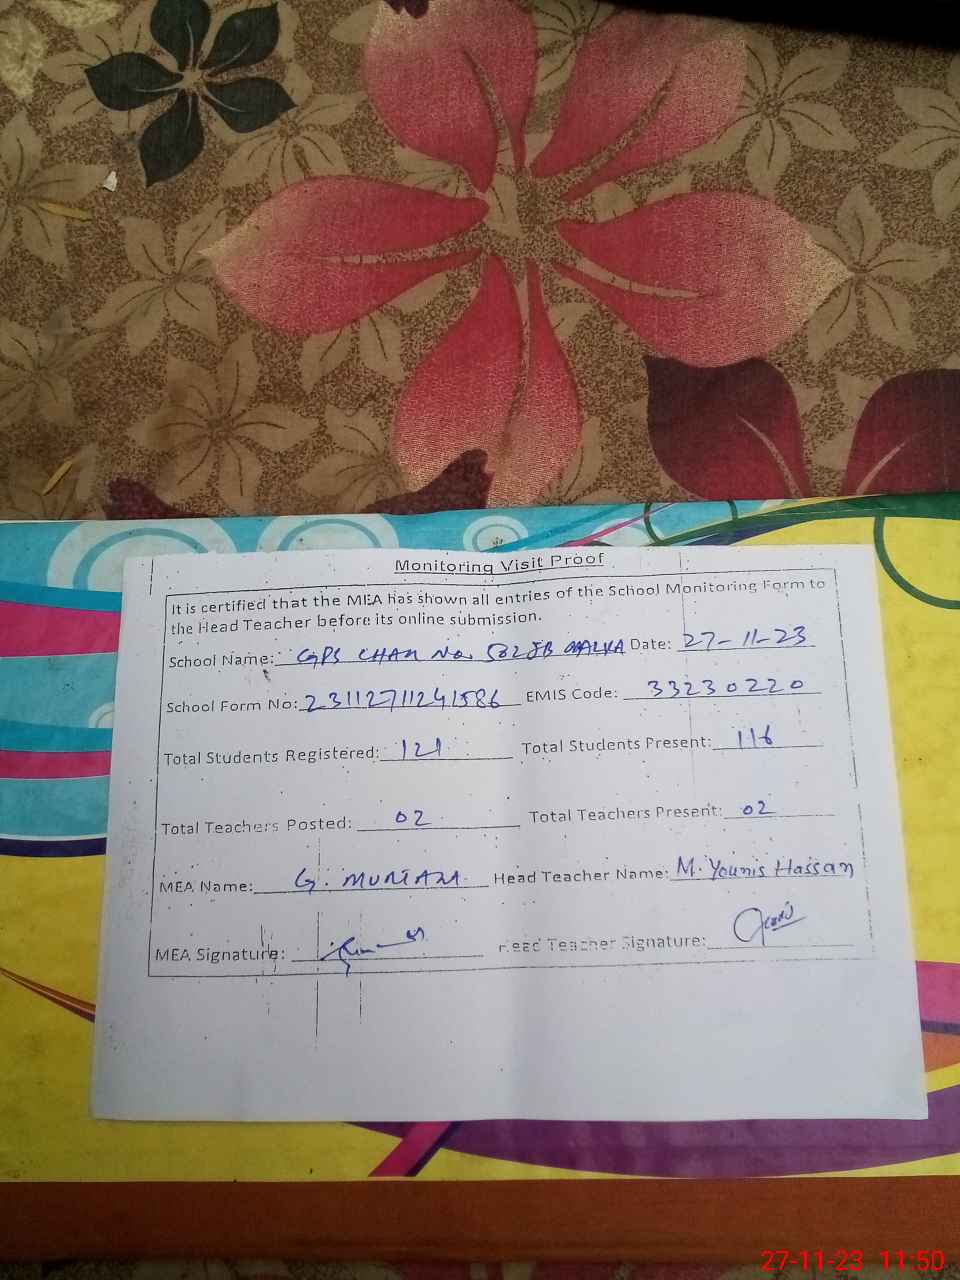 Monitoring Visit Proof
It is certified that the MEA has shown all entries of the School Monitoring Form to
the Head Teacher before its online submission.
School Name: GPS CHAK No. 502 JB Date: 27-11-23
School Form No: 23112711241586 EMIS Code: 33230220
Total Students Registered: 121 Total Students Present: 116
Total Teachers Posted: 02 Total Teachers Present: 02
MEA Name: G. MURTAZA Head Teacher Name: M. Younis Hassan
MEA Signature: Head Teacher Signature:
27-11-23 11:50